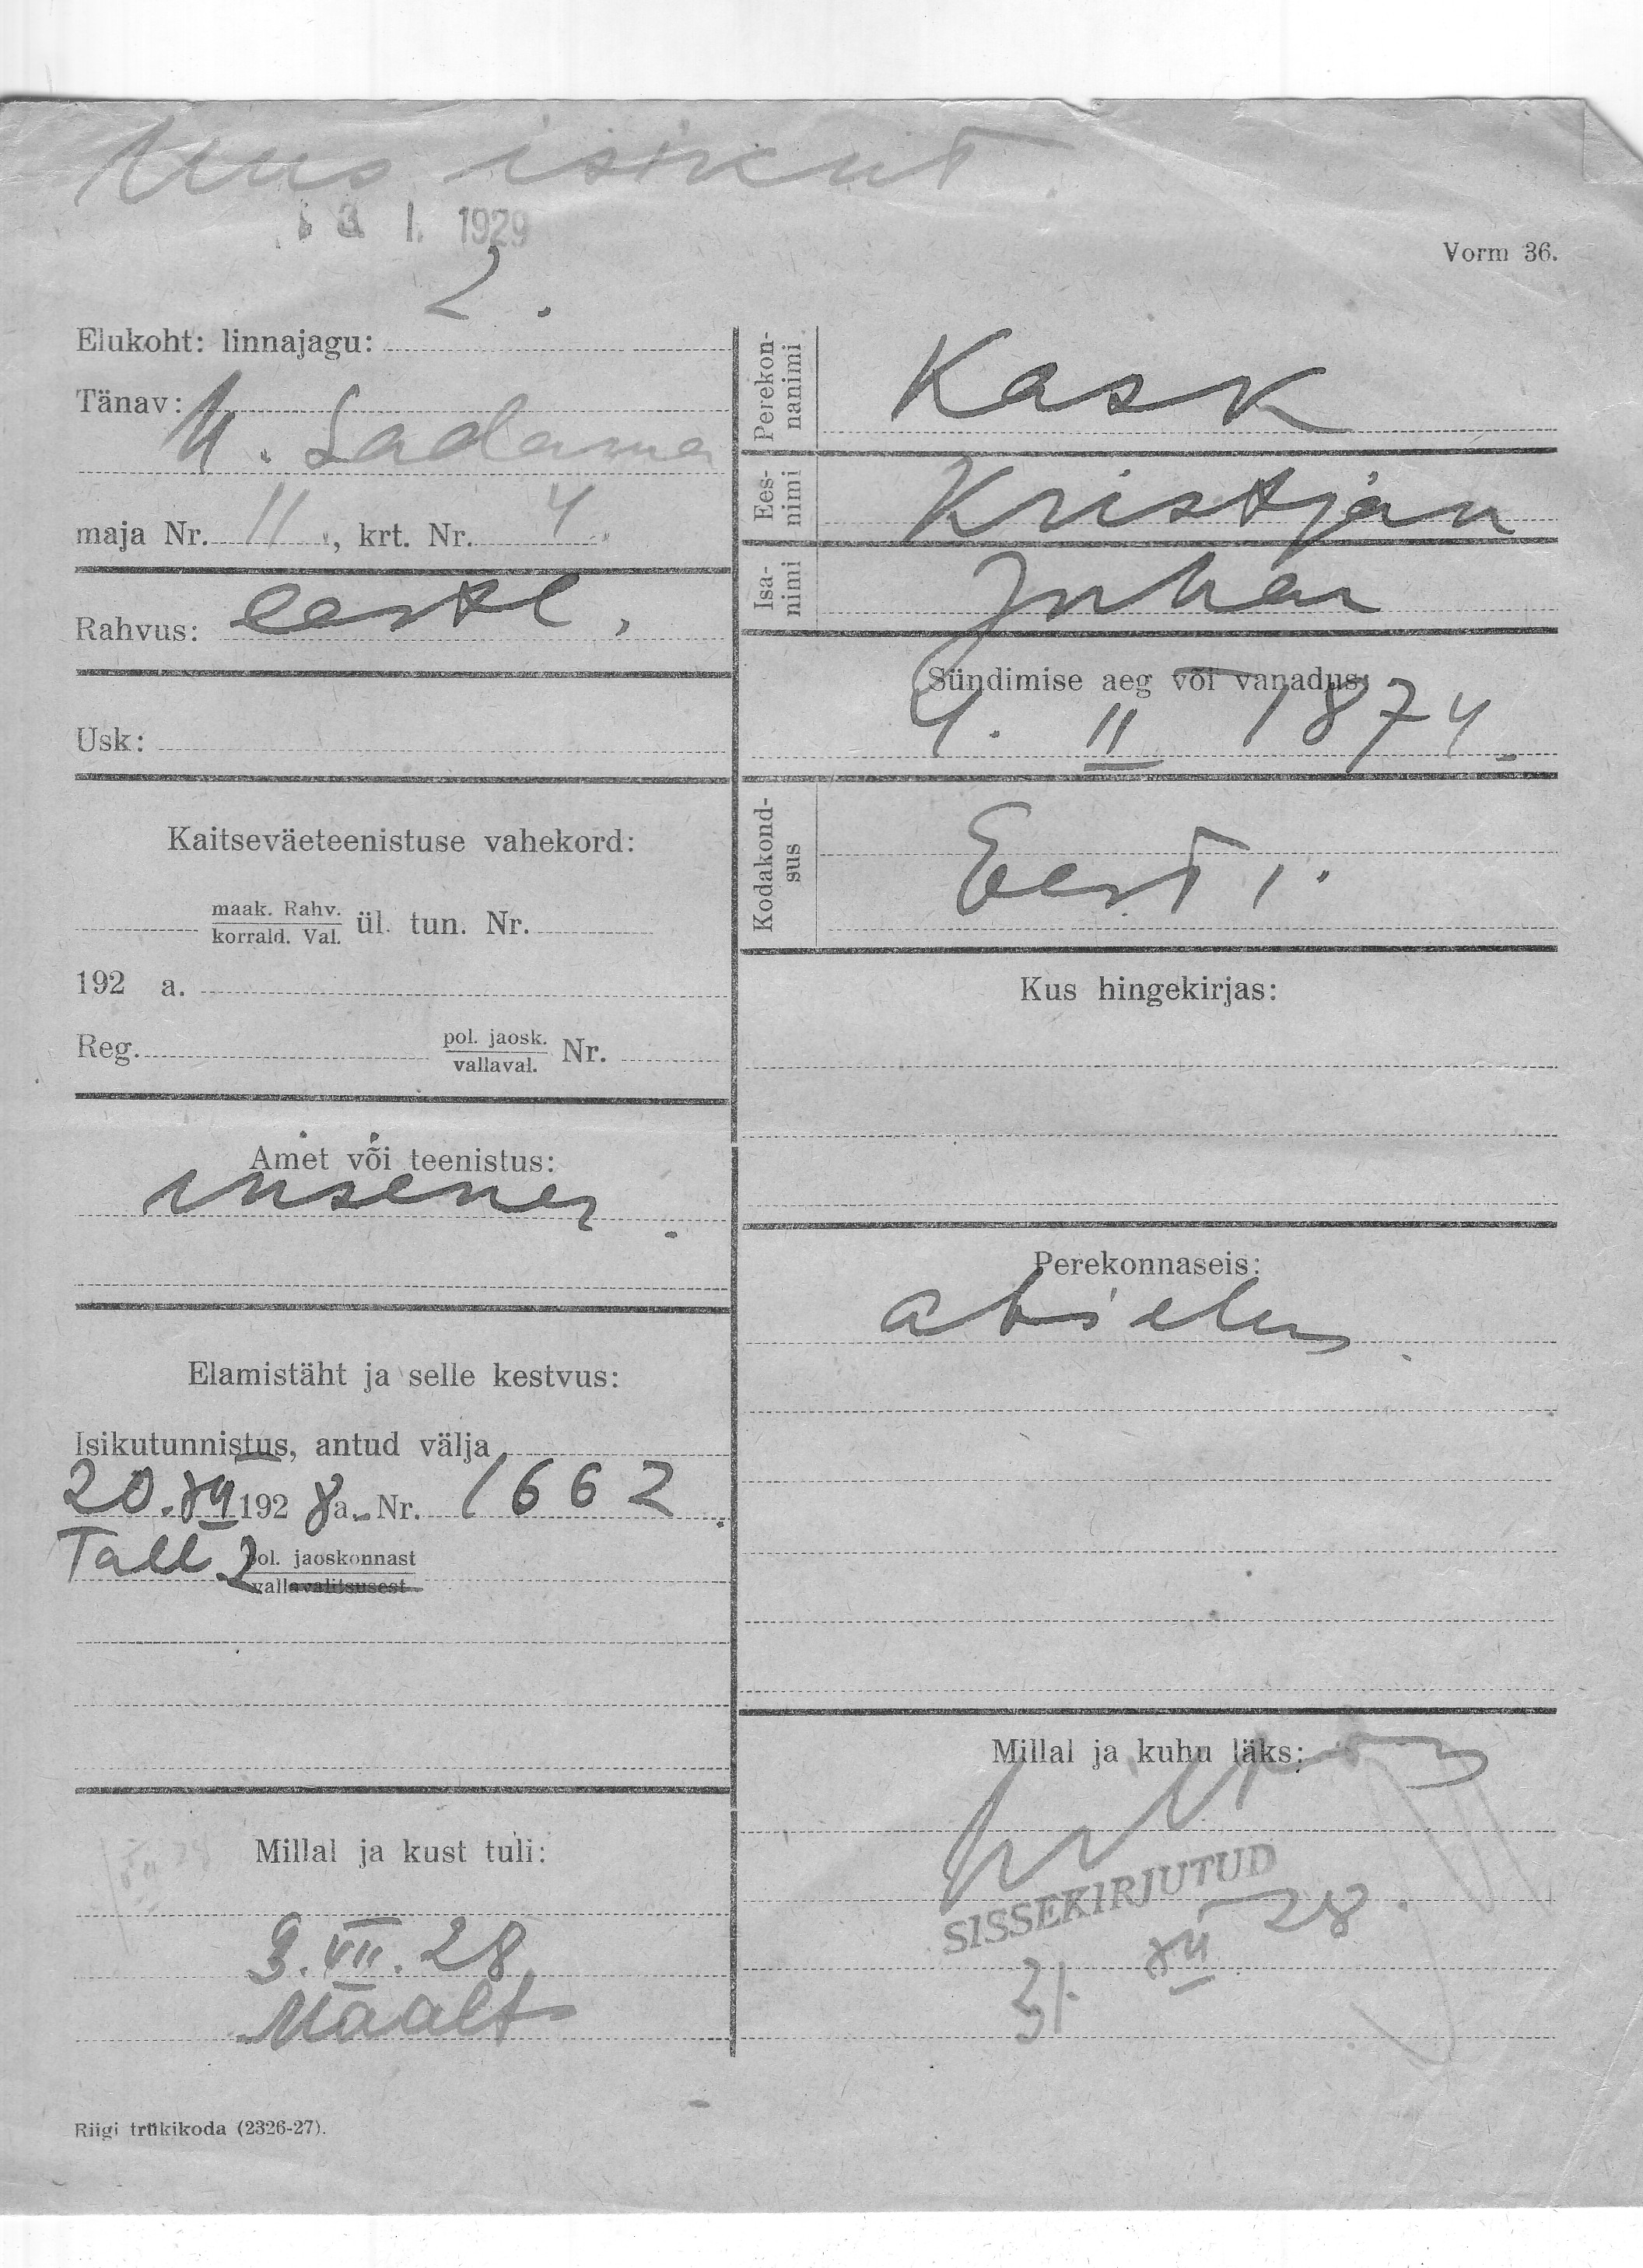 Uus isikut.
3 I. 1929
Vorm 36.
2.
Elukoht: linnajagu:
Tänav:
U. Sadama
maja Nr. 11, krt. Nr. 4.
Rahvus: eestl,
Usk:
Kaitseväeteenistuse vahekord:
maak. Rahv.
korrald. Val. ül. tun. Nr.
192 a.
Reg. pol. jaosk.
vallaval. Nr.
Amet või teenistus:
insener.
Elamistäht ja selle kestvus:
Isikutunnistus, antud välja
20. XII 1928 a. Nr. 1662.
Tall. 2 pol. jaoskonnast
vallavalitsusest
Millal ja kust tuli:
3. VII. 28
Maalt
Perekonnanimi
Kask
Eesnimi
Kristjan
Isanimi
Juhan
Sündimise aeg või vanadus:
4. II 1874.
Kodakondsus
Eesti.
Kus hingekirjas:
Perekonnaseis:
abielus.
Millal ja kuhu läks:
SISSEKIRJUTUD
31. XII 28.
Riigi trükikoda (2326-27).